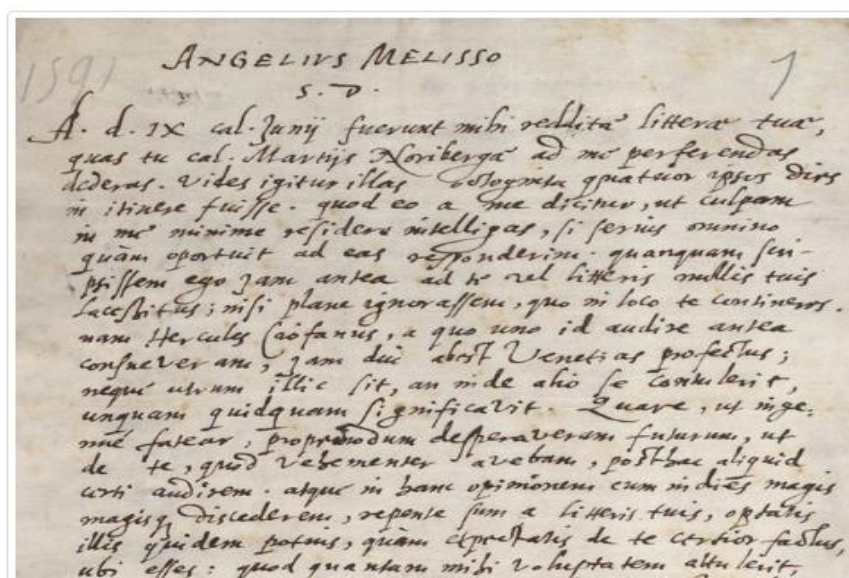 1591
ANGELIVS MELISSO
1
S. D.
A. d. IX cal. Junij fuerunt mihi redditæ litteræ tuæ,
quas tu cal. Martijs Noribergæ ad me perferendas
dederas. Vides igitur illas octoginta quatuor ipsos dies
in itinere fuisse. quod eo a me dicitur, ut culpam
in me minime residere intelligas, si serius omnino
quàm oportuit ad eas responderim. quanquam scri-
psissem ego jam antea ad te vel litteris nullis tuis
lacessitus; nisi plane ignorassem, quo in loco te contineres.
nam Hercules Ciofanus, a quo uno id audire antea
consueveram, jam diu abest Venetias profectus;
neque utrum illic sit, an inde alio se contulerit,
unquam quidquam significavit. Quare, ut inge-
nue fatear, propemodum desperaveram futurum, ut
de te, quod vehementer avebam, posthac aliquid
certi audirem. atque in hanc opinionem cum in dies magis
magisq discederem, repente sum a litteris tuis, optatis
illis quidem potius, quàm expectatis de te certior factus,
ubi esses: quod quantam mihi voluptatem attulerit,